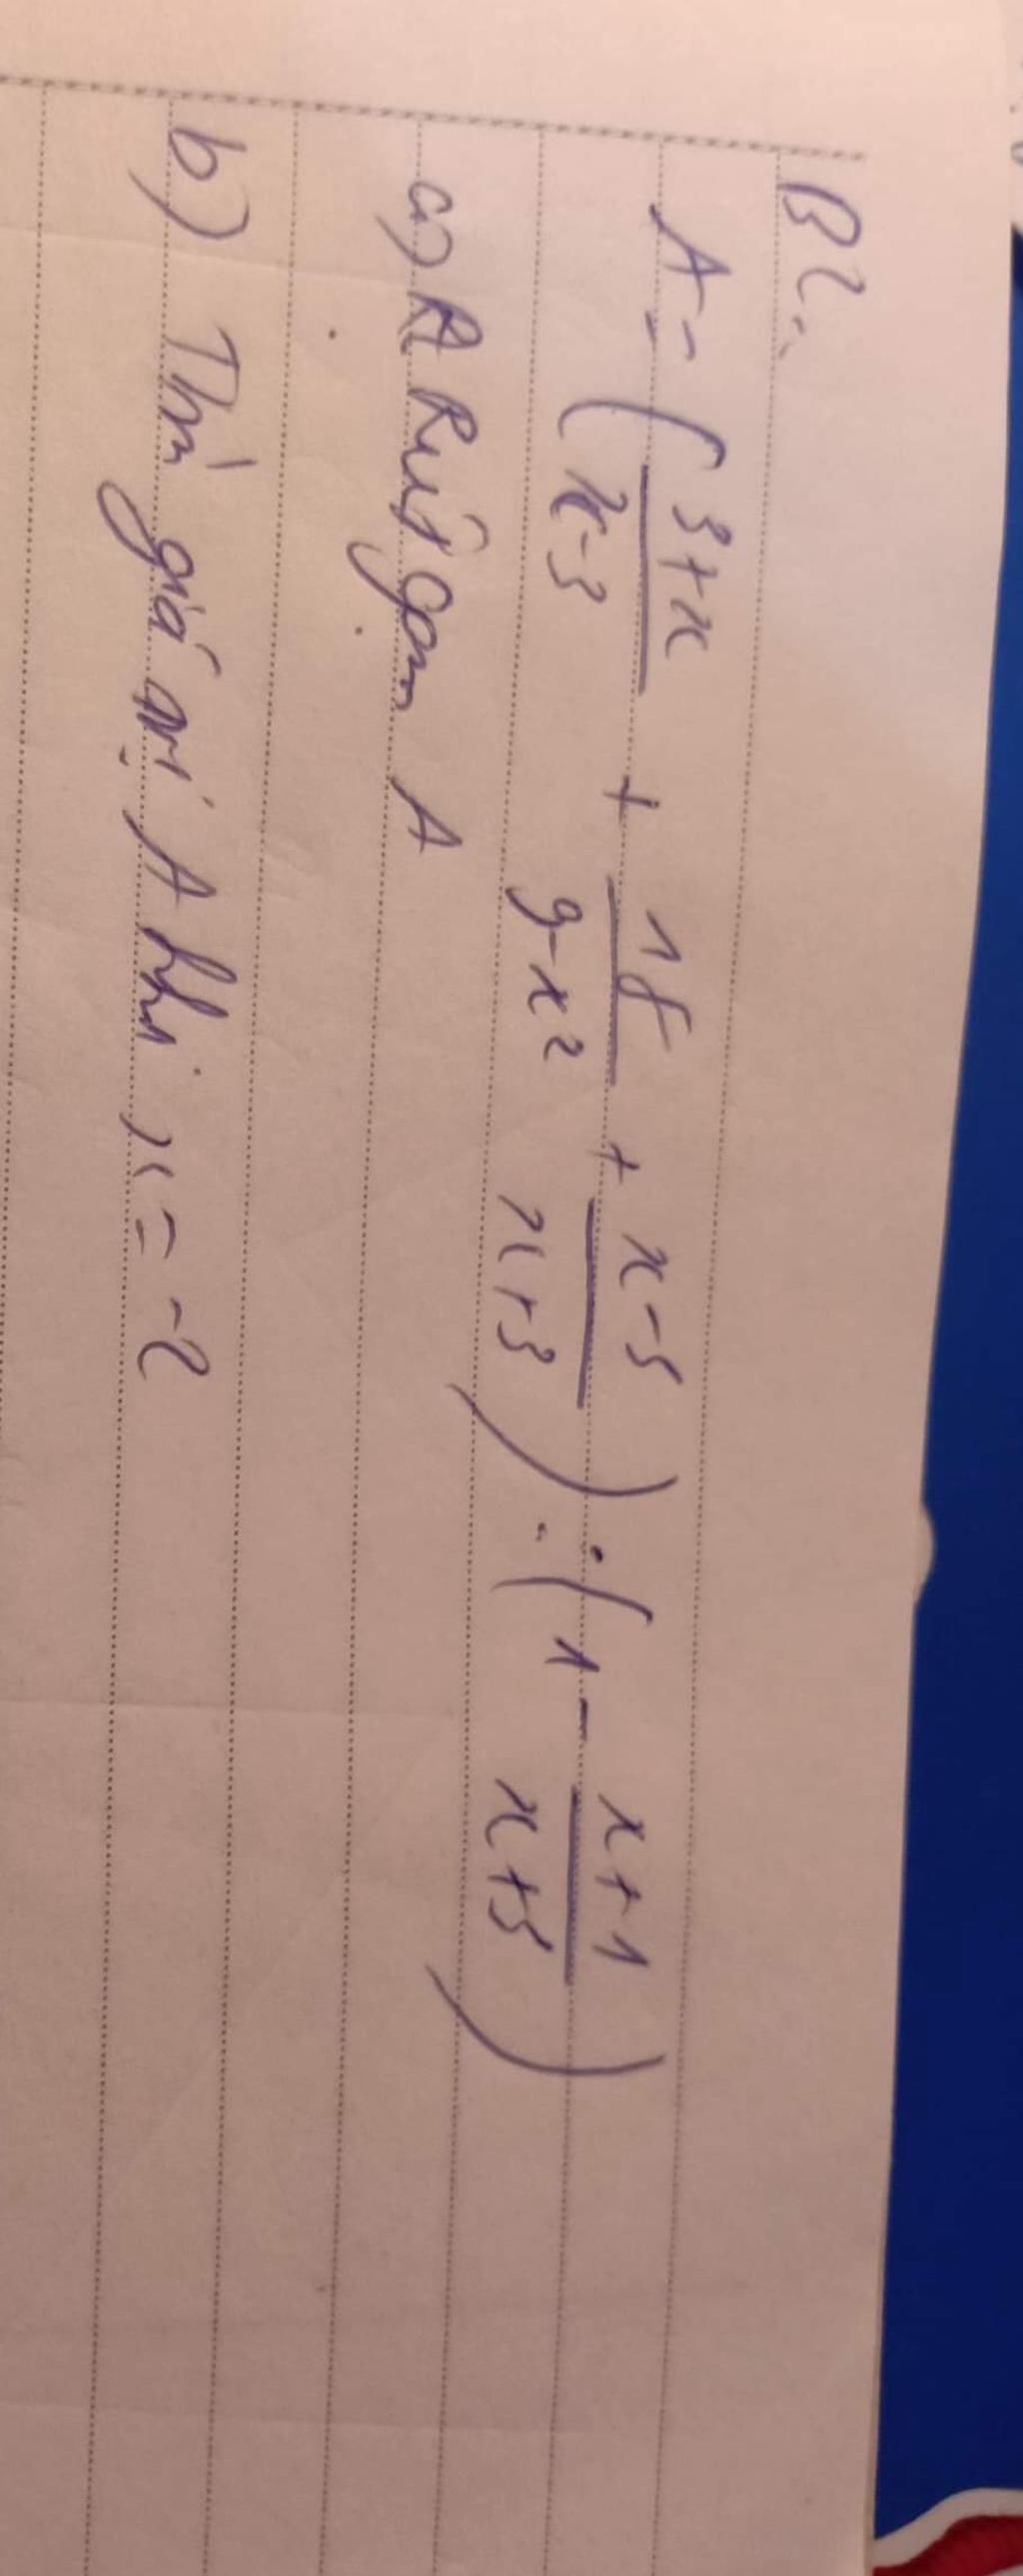 B2:
A = (3+x/x-3 + 18/9-x² + x-3/x+3) : (1 - x+1/x+3)
a) R Rút gọn A
b) Tìm giá trị A khi x = -2